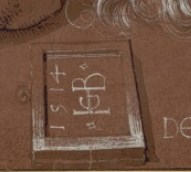 1514
HGB
DE